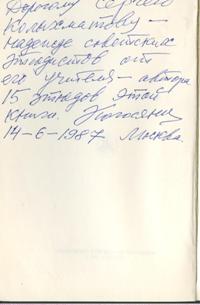 Дорогому Сергею
Колыхматову –
надежде советских
этюдистов от
его учителя – автора
15 этюдов этой
книги. Погосянц
14-6-1987 Москва.